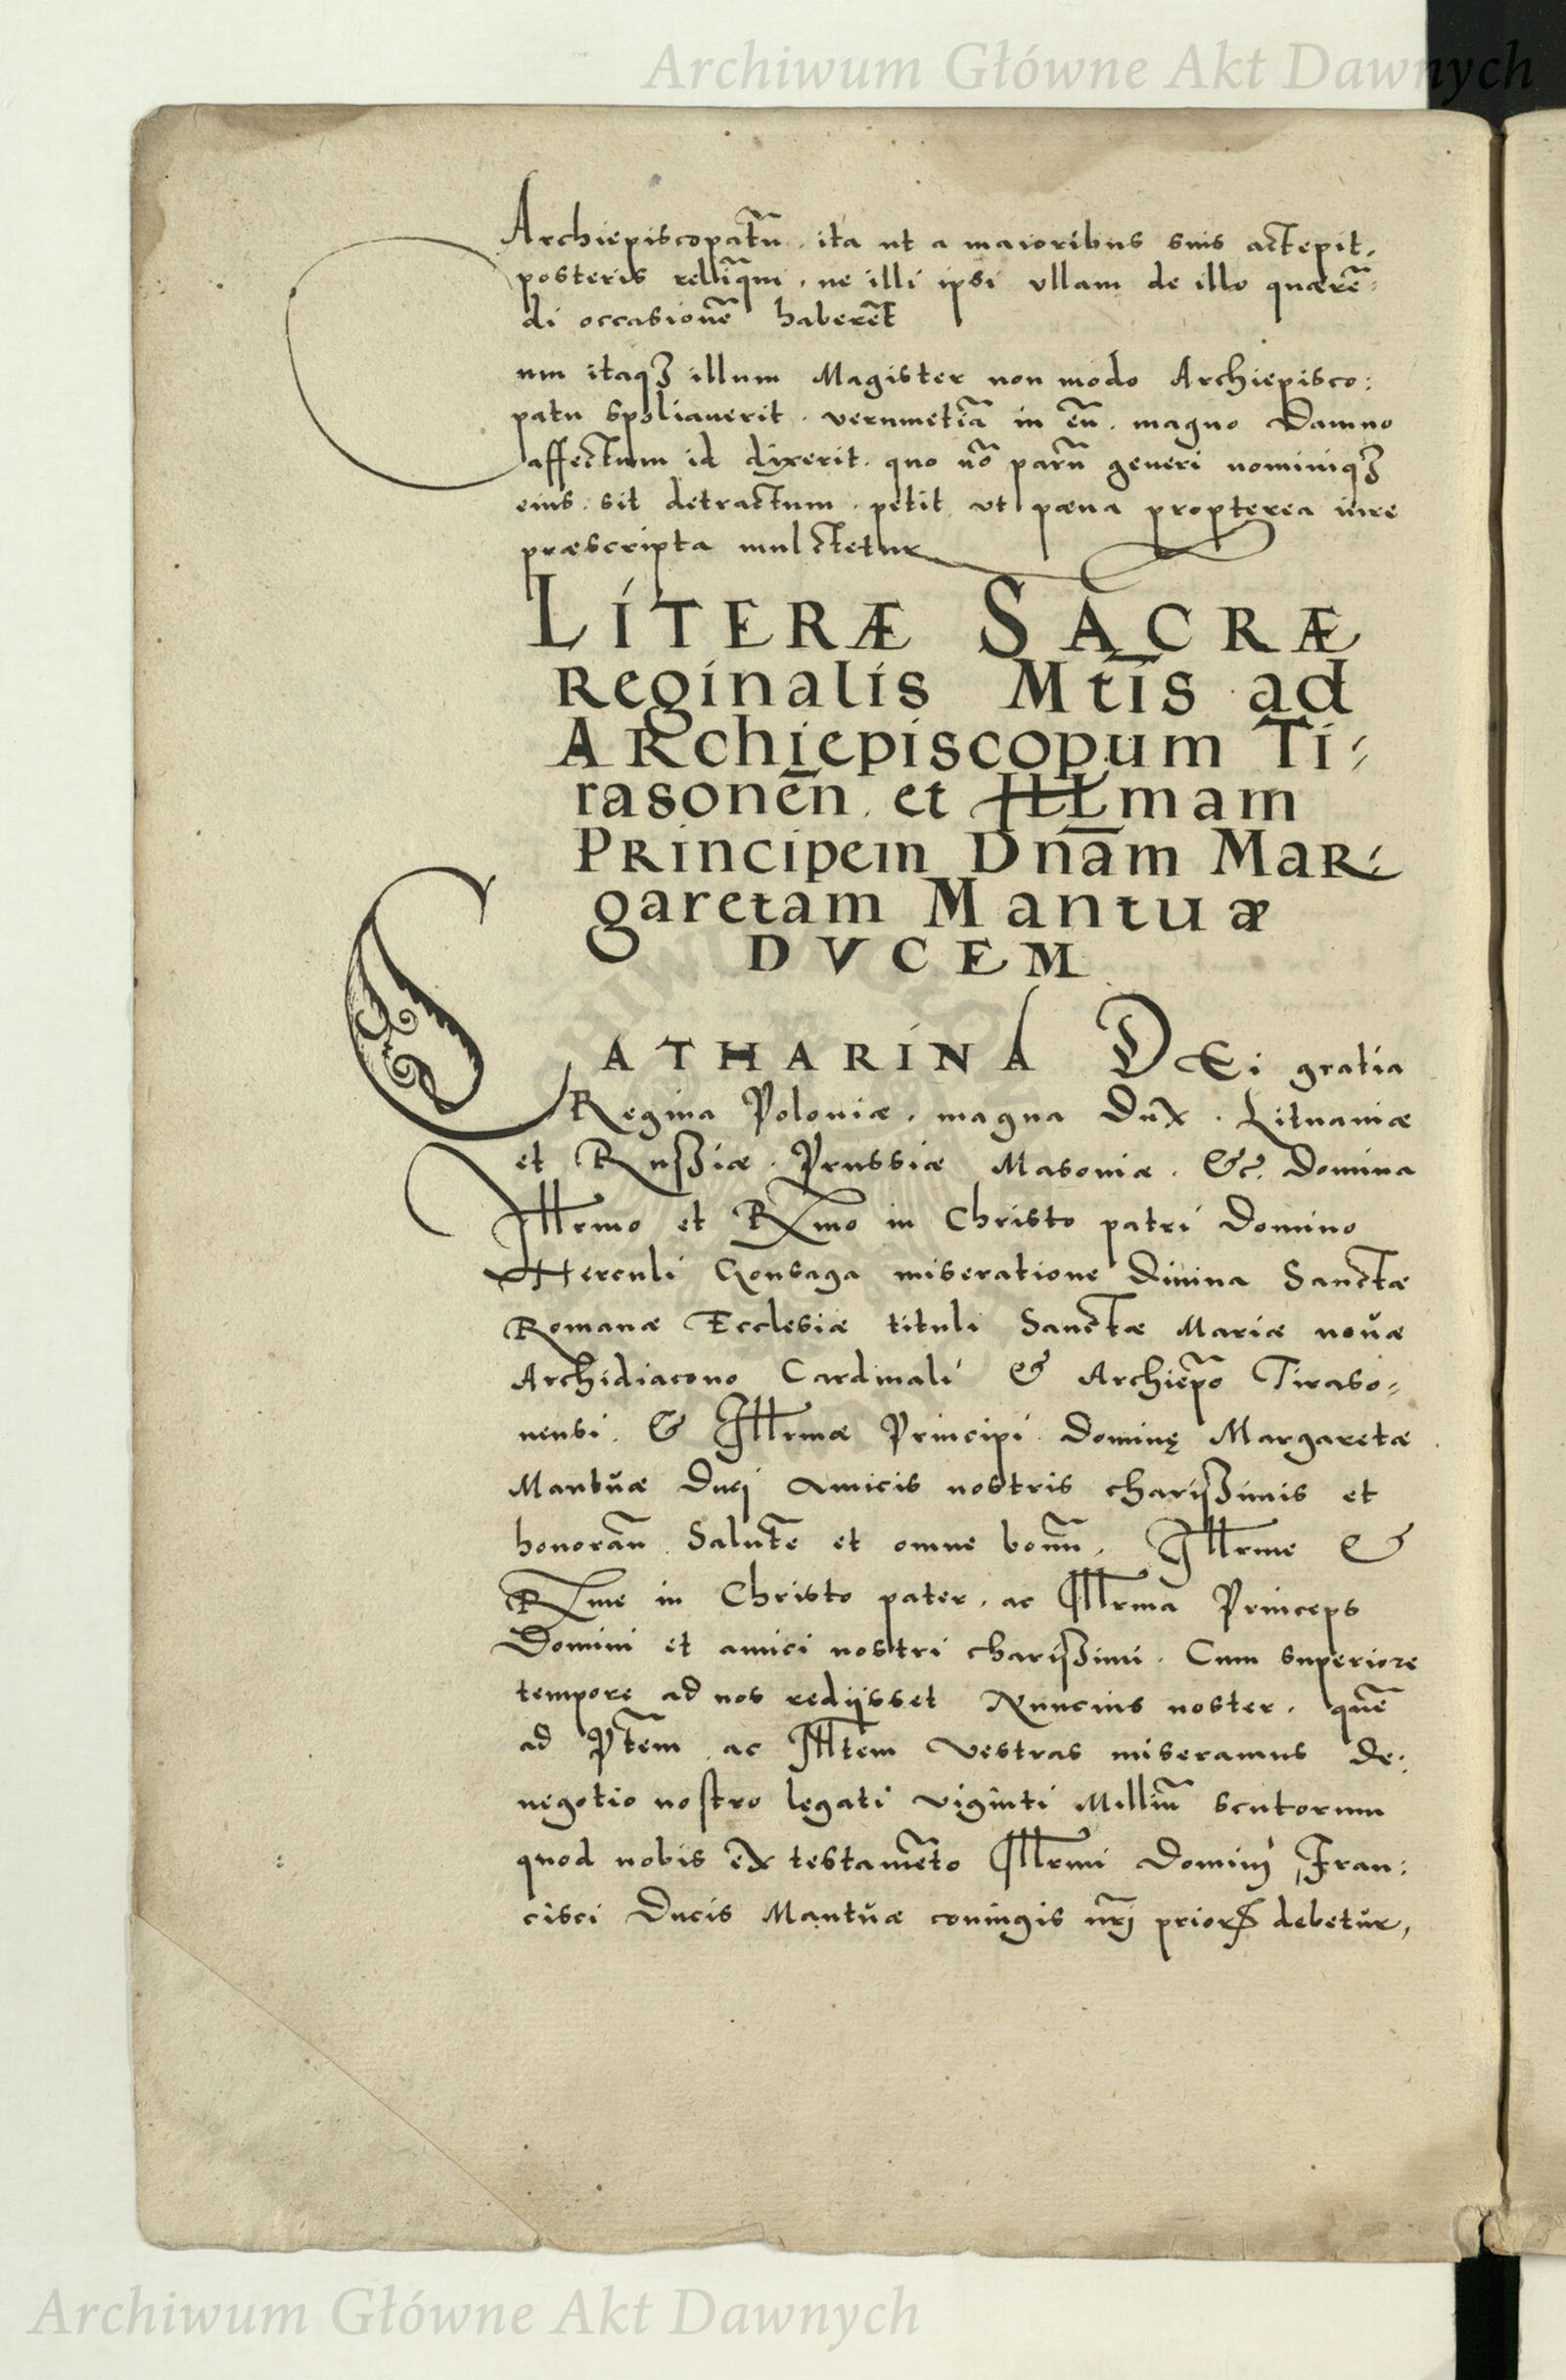 Archiwum Główne Akt Dawnych
Archiepiscopatũ, ita ut a maioribus suis accepit,
posteris relliq̃ui, ne illi ipsi ullam de illo quærẽ:
di occasionẽ haberẽt
Cum itaqꝫ illum Magister non modo Archiepisco:
patu spoliauerit, verumetiã in eũ, magno Damno
affectum id dixerit, quo nõ parũ generi nominiqꝫ
eius sit detractum, petit, ut pæna propterea iure
præscripta mulctetur
LITERÆ SACRÆ
Reginalis Mtĩs ad
ARchiepiscopum Ti-
rasonẽn, et Illmam
PRincipem Dnãm MaR-
garetam Mantuæ
DVCEM
CATHARINA DEi gratia
Regina Poloniæ, magna Dux Lituaniæ
et Rußiæ, Prussiæ Masoniæ, &c. Domina
Illrmo et Rxmo in Christo patri Domino
Herculi Gonsaga miseratione Diuina Sanctæ
Romanæ Ecclesiæ tituli Sanctæ Mariæ nouæ
Archidiacono Cardinali & Archiep̃o Tiraso-
nensi, & Illrmæ Principi Dominę Margaretæ
Mantuæ Duci Amicis nostris charißimis et
honorãn, Salutẽ et omne bonũ, Illrme &
Rxme in Christo pater, ac Illrma Princeps
Domini et amici nostri charißimi. Cum superiore
tempore ad nos redijsset Nuncius noster, quẽ
ad Ptẽm ac Illtem Vestras miseramus De:
negotio nostro legati viginti Milliũ scutorum
quod nobis ex testamẽto Illrmi Dominj Fran:
cisci Ducis Mantuæ coniugis nr̃j prioris debetur,
Archiwum Główne Akt Dawnych